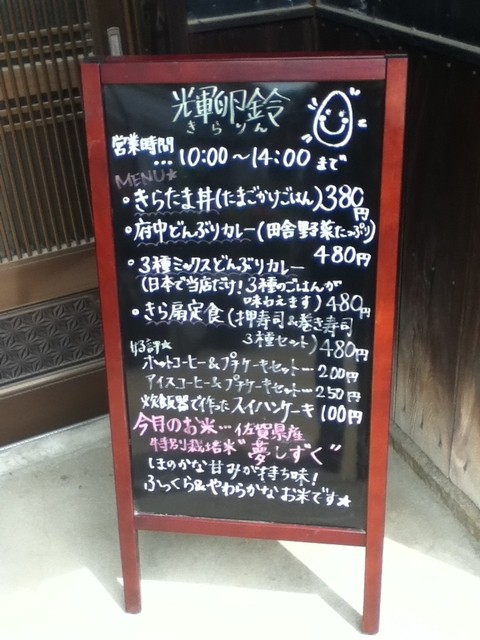 輝卵鈴
きらりん
営業時間
…10:00～14:00まで
MENU☆
・きらたま丼(たまごかけごはん)380円
・府中どんぶりカレー(田舎野菜たっぷり)
480円
・3種ミックスどんぶりカレー
(日本で当店だけ!3種のごはんが
味わえます)480円
・きら扇定食(押寿司&巻き寿司
3種セット)480円
ホットコーヒー&プチケーキセット…200円
アイスコーヒー&プチケーキセット…250円
炊飯器で作ったスイハンケーキ100円
今月のお米…佐賀県産
特別栽培米"夢しずく"
ほのかな甘みが持ち味!
ふっくら&やわらかなお米です☆